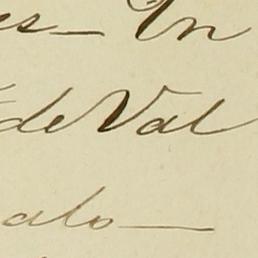 es- En
de Val
alo-